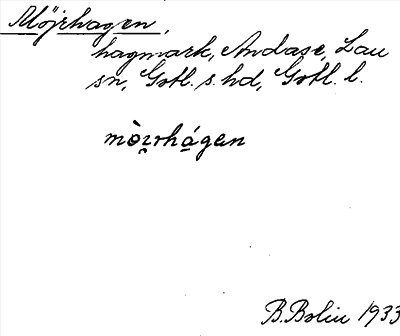 Möjrhagen,
hagmark, Andase, Lau
sn, Gotl. s. hd, Gotl. l.
mòɪrhágen
B. Bolin 1933